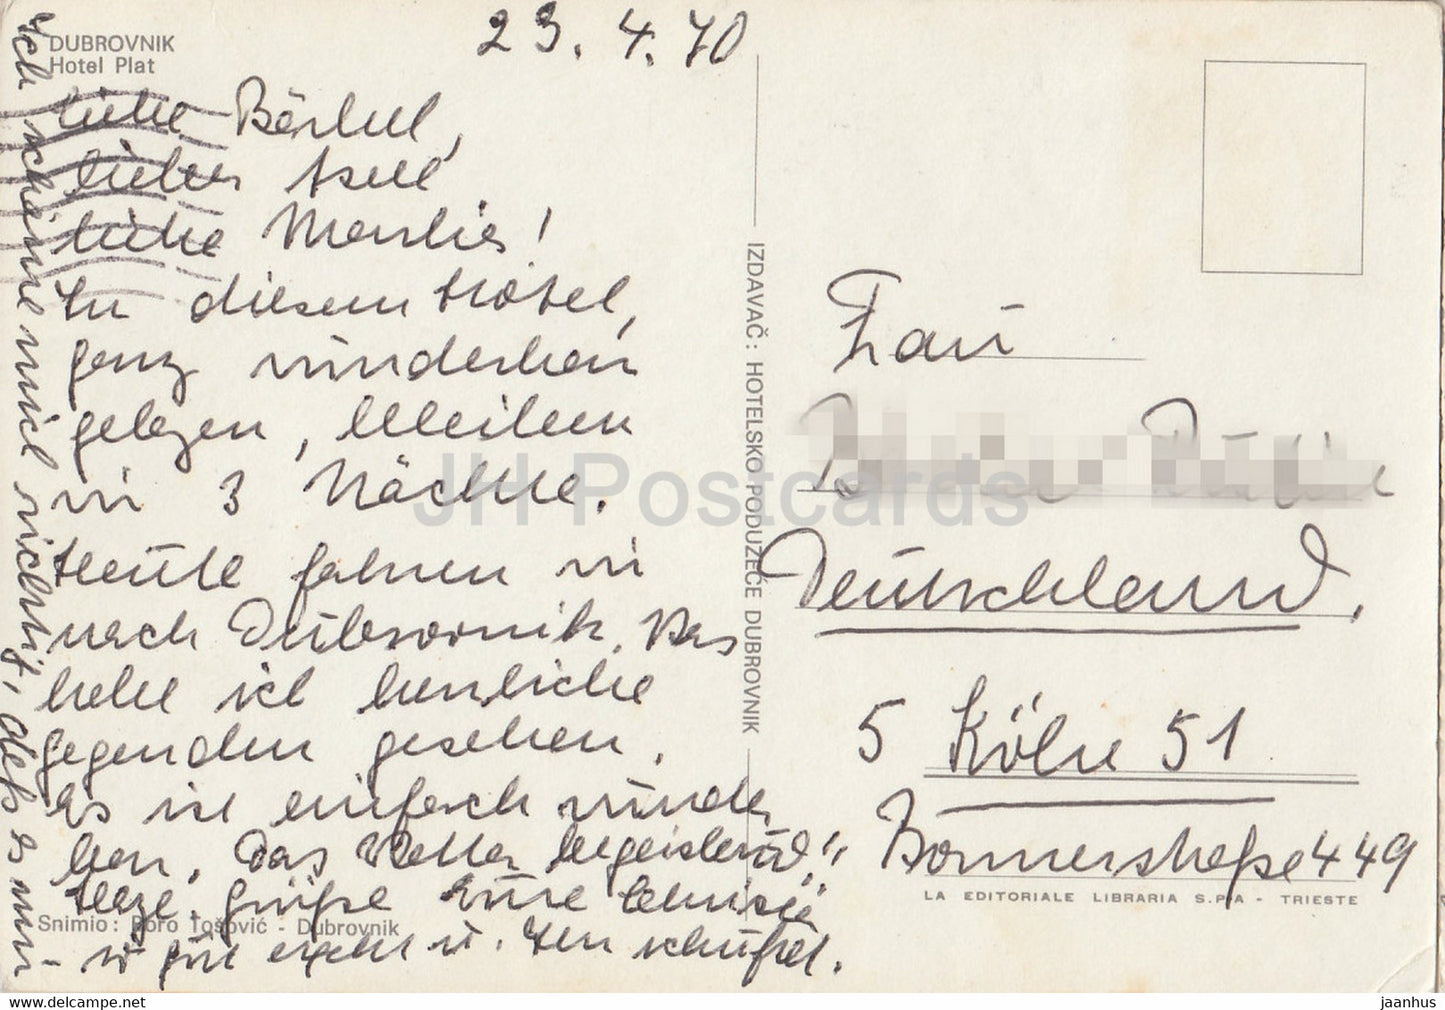 23.4.70
DUBROVNIK
Hotel Plat
Liebe Bärbel,
lieber Axel
liebe Marlies!
In diesem Hotel,
ganz wunderbar
gelegen, bleiben
wir 3 Nächte.
Heute fahren wir
nach Dubrovnik. Was
habe ich herrliche
Gegenden gesehen.
Es ist einfach wunder
bar. Das Wetter begeisternd!
Herzl. Grüße Eure
wie gut u.
Ich schäme mich nicht, daß es mir
Snimio: Boro Tošović - Dubrovnik
IZDAVAČ: HOTELSKO PODUZEĆE DUBROVNIK
Frau
Deutschland,
5 Köln 51
Bonnerstraße 449
LA EDITORIALE LIBRARIA S.P.A - TRIESTE
JH Postcards
www.delcampe.net
jaanhus